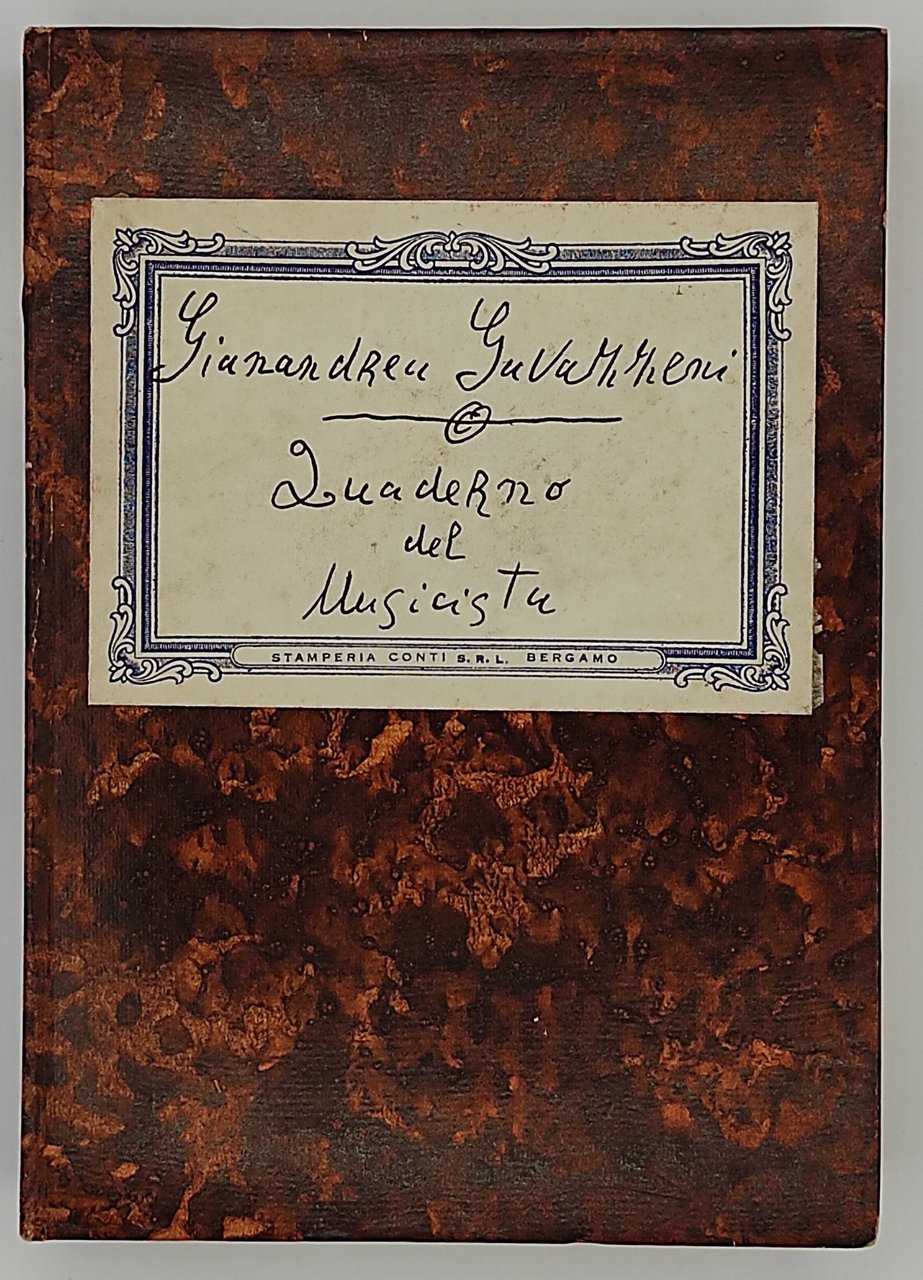 Gianandrea Gavazzeni
Quaderno
del
Musicista
STAMPERIA CONTI S.R.L. BERGAMO